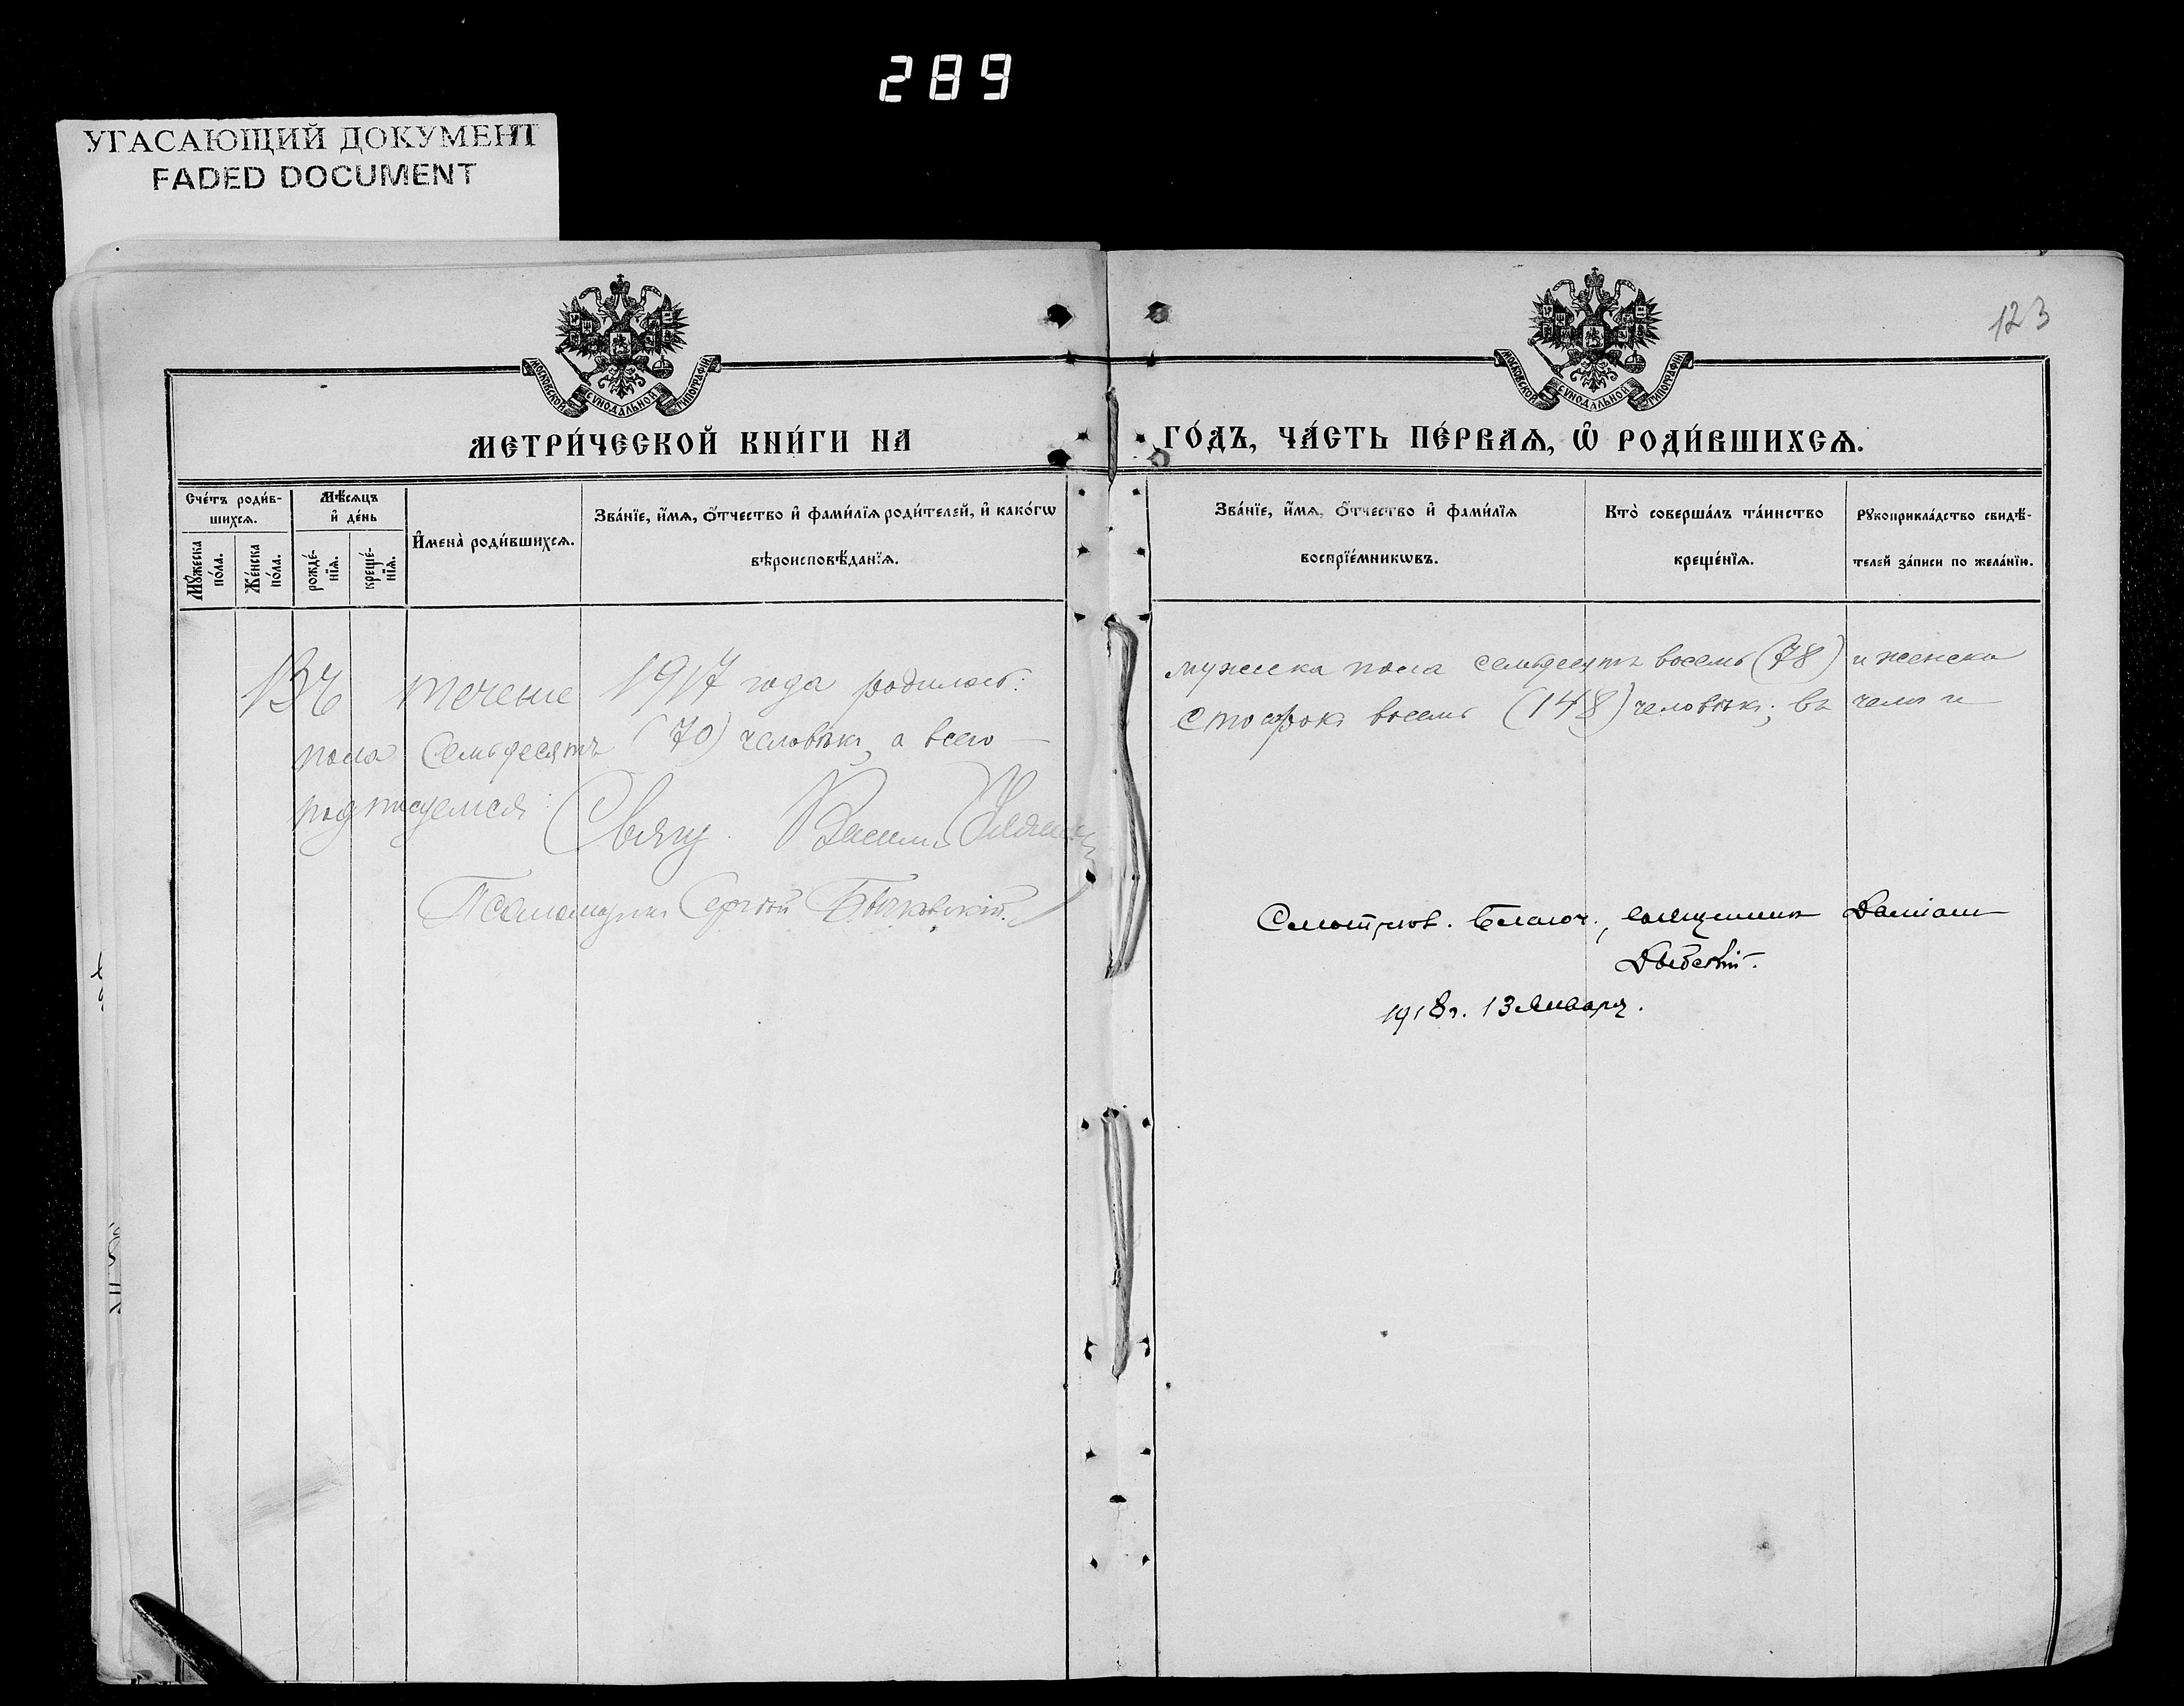 289
УГАСАЮЩИЙ ДОКУМЕНТ
FADED DOCUMENT
123
МОСКОВСКОЙ СѴНОДАЛЬНОЙ ТИПОГРАФІИ
МОСКОВСКОЙ СѴНОДАЛЬНОЙ ТИПОГРАФІИ
МЕТРИ́ЧЕСКОЙ КНИ́ГИ НА ГО́ДЪ, ЧА́СТЬ ПЕ́РВАѦ, Ѽ РОДИ́ВШИХСѦ.
Сче́тъ роди́в-
шихсѧ.
Мꙋ́жеска по́ла.
Же́нска по́ла.
Мѣ́сѧцъ
и҆ де́нь
рожде́-нїѧ.
креще́-нїѧ.
И҆мена̀ роди́вшихсѧ.
Зва́нїе, и҆́мѧ, ѻ҆́тчество и҆ фами́лїѧ роди́телей, и҆ како́гѡ
вѣроисповѣ́данїѧ.
Зва́нїе, и҆́мѧ, ѻ҆́тчество и҆ фами́лїѧ
воспрїе́мникѡвъ.
Кто̀ соверша́лъ та́инство
креще́нїѧ.
Рꙋкоприкла́дство свидѣ́-
телей за́писи по жела́нїю.
Въ течение 1917 года родилось: мужеска пола семьдесятъ восемь (78) и женска
пола семьдесятъ (70) человѣкъ, а всего — сто сорокъ восемь (148) человѣкъ; въ чемъ и
подписуемся:
Свящ. Василій
Псаломщикъ Сергѣй Бычковскій.
Смотрѣлъ. Благоч., священникъ Даміанъ
1918 г. 13 Января.